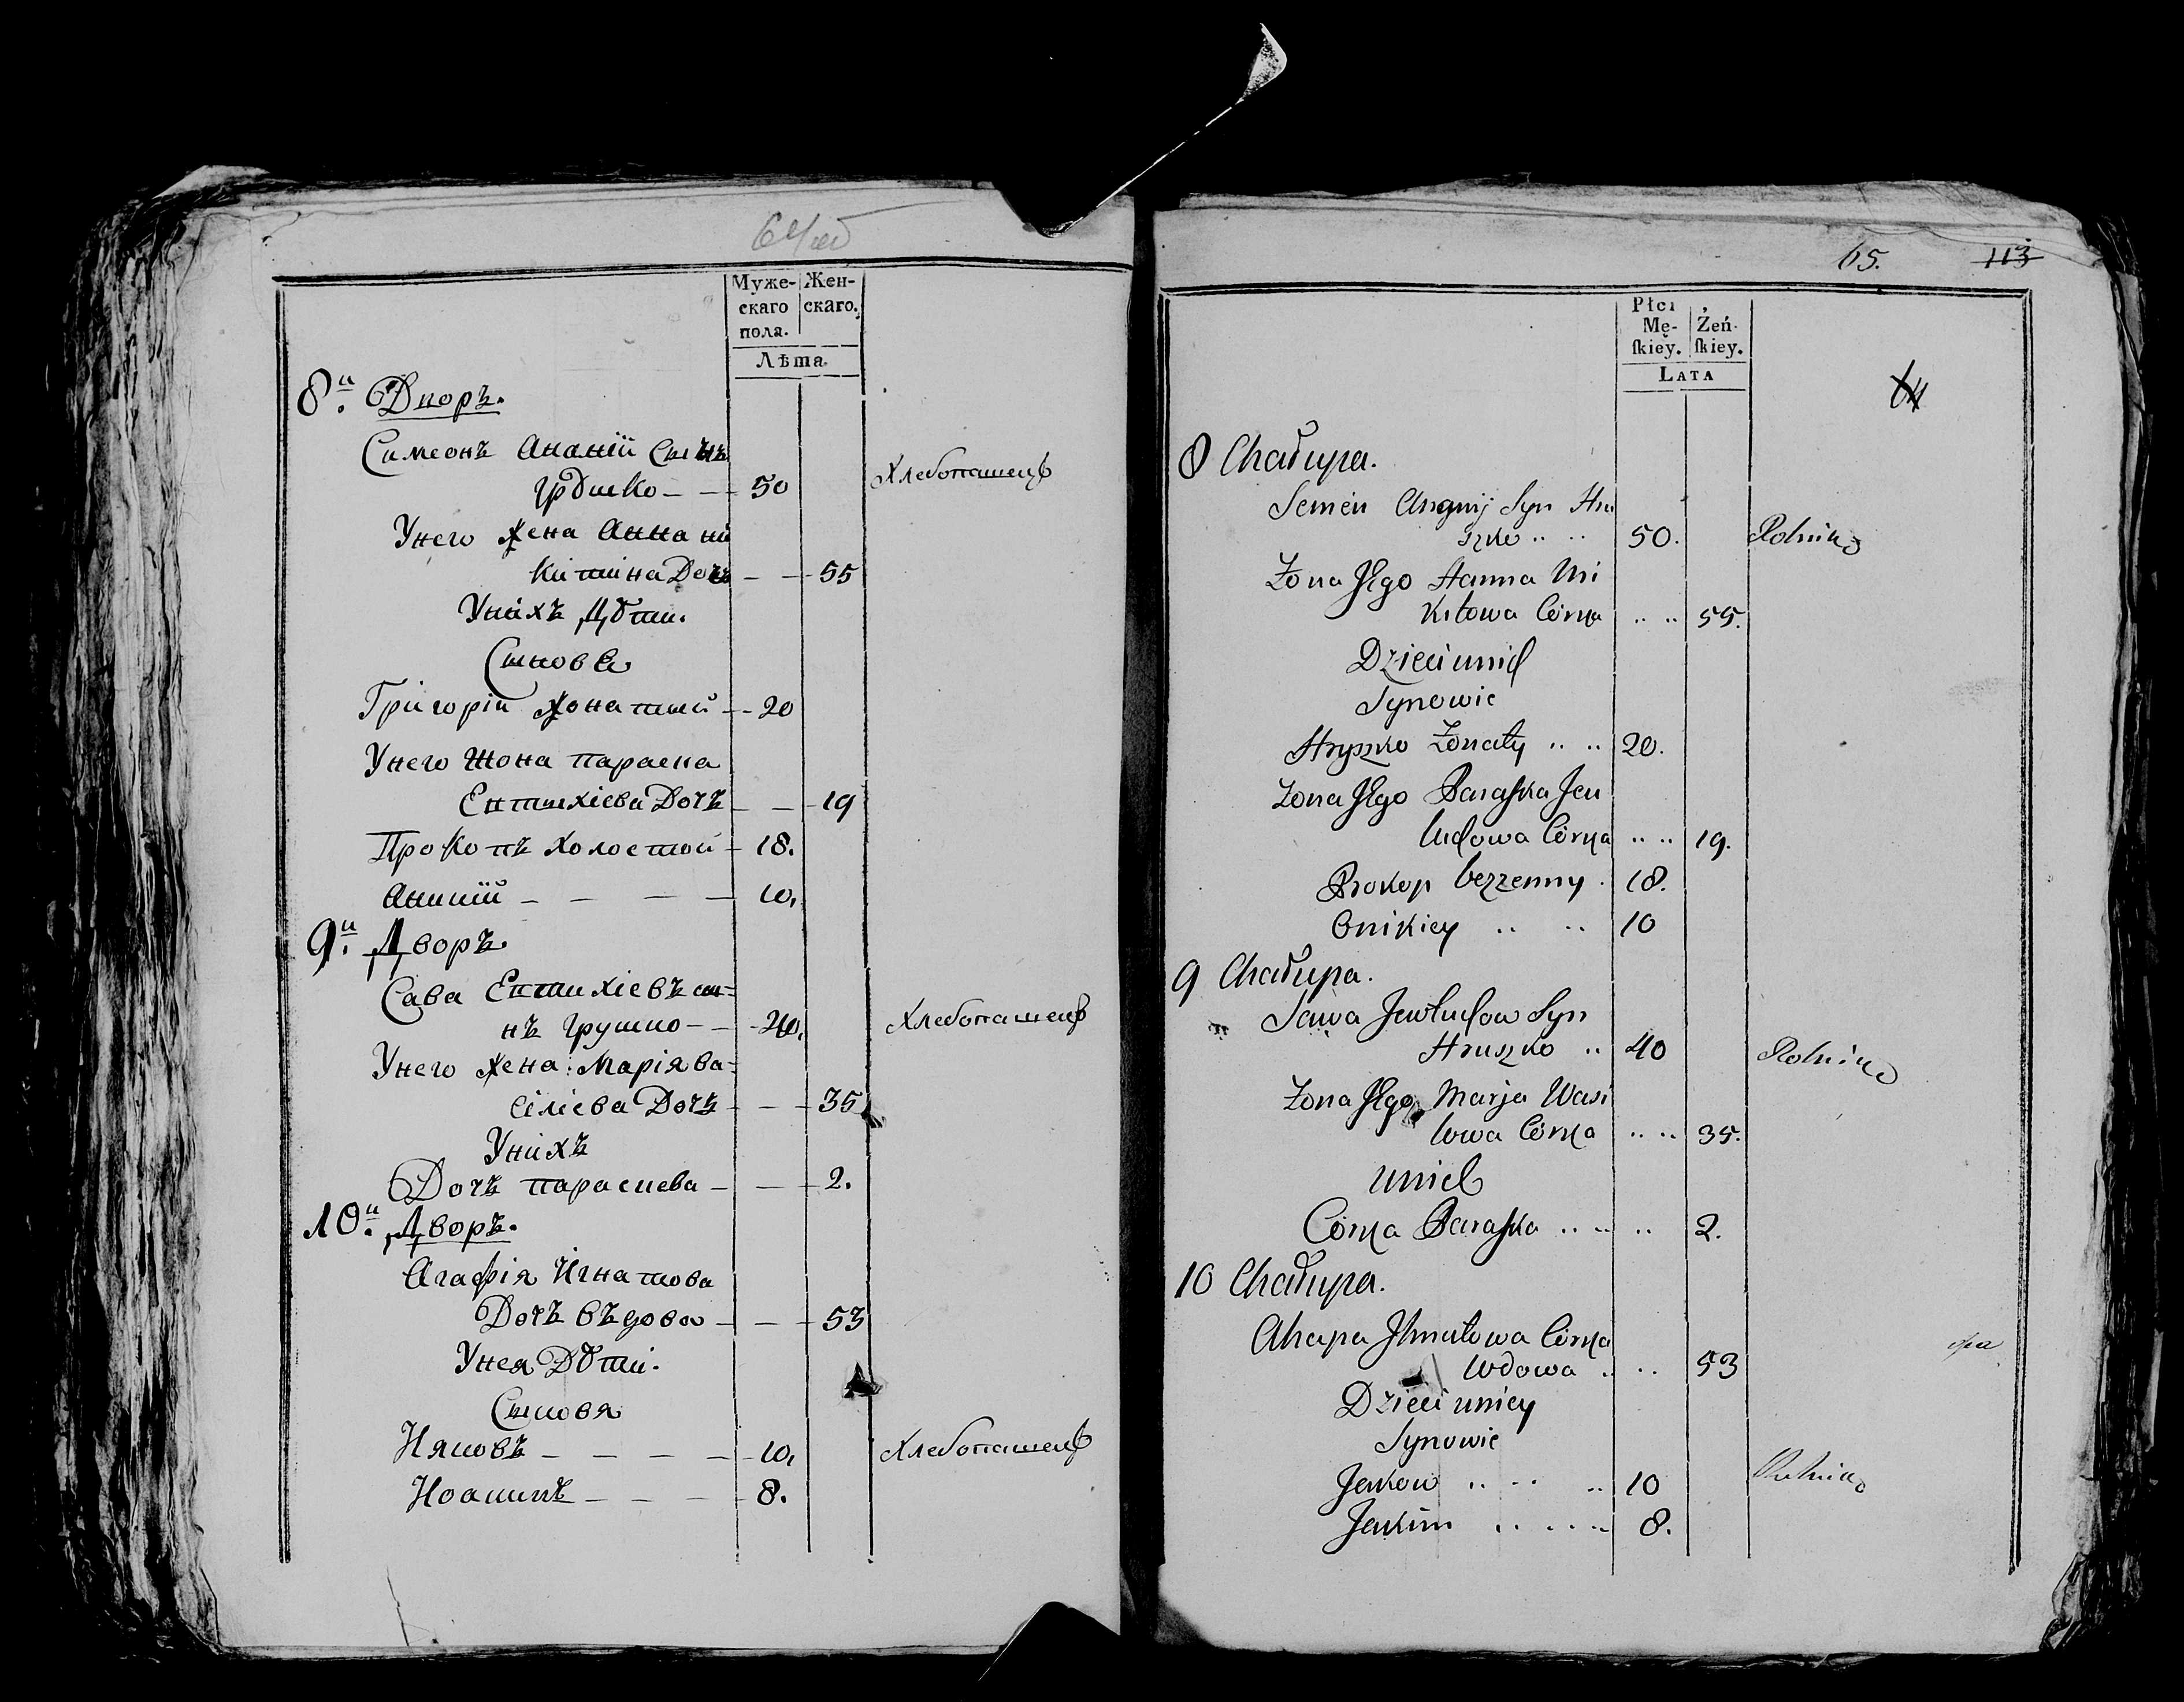 64 об
Муже-
скаго
пола.
Жен-
скаго.
Лѣта
8й. Дворъ.
Симеонъ Ананій Сынъ
Грушко - - 50
Хлебопашецъ
Унего жена Анна ни
китина Дочь - - 55
Унихъ Дѣти.
Сыновя
Григорій жонатый - - 20
Унего жона параска
Евтихіева Дочъ - - 19
Прокопъ холостой - 18.
9й. Дворъ
Сава Евтихіевъ сы=
нъ Грушко - - 40.
Хлебопашецъ
Унего жена: Марія ва=
силіева Дочъ - - 35
Унихъ
Дочъ парасцева - - 2.
10й. Дворъ.
Агафія Игнатова
Дочъ въдова - - 53
Унея Дѣти.
Сыновя
Ияковъ - - - - 10,
Хлебопашецъ
Иоакимъ - - - - 8.
65. 113
Płci
Mę-
ſkiey.
Żeń-
ſkiey.
LATA
64
8 Chałupa.
Semen Ananij Syn Hru
szko .. .. 50.
Rolnik
Żona Jego Hanna Mi
kitowa Córka .. .. 55.
Dzieci unich
Synowie
Hryszko Żonaty .. .. 20.
Żona Jego Paraſka Jew
tuchowa Córka .. .. 19.
Prokop bezzenny . 18.
Onikiey .. .. 10
9 Chałupa.
Sawa Jewtuchow Syn
Hruszko .. 40
Rolnik
Żona Jego Marja Wasi
lowa Córka .. .. 35.
unich
Córka Paraſka .. .. .. 2.
10 Chałupa.
Ahapa Jhnatowa Córka
Wdowa .. .. 53
Dzieci uniey
Synowie
Jakow .. .. .. 10
Rolnik
Jakim .. .. .. 8.